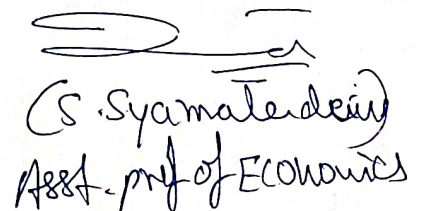 (S. Syamala devi)
Asst. prof of ECONOMICS